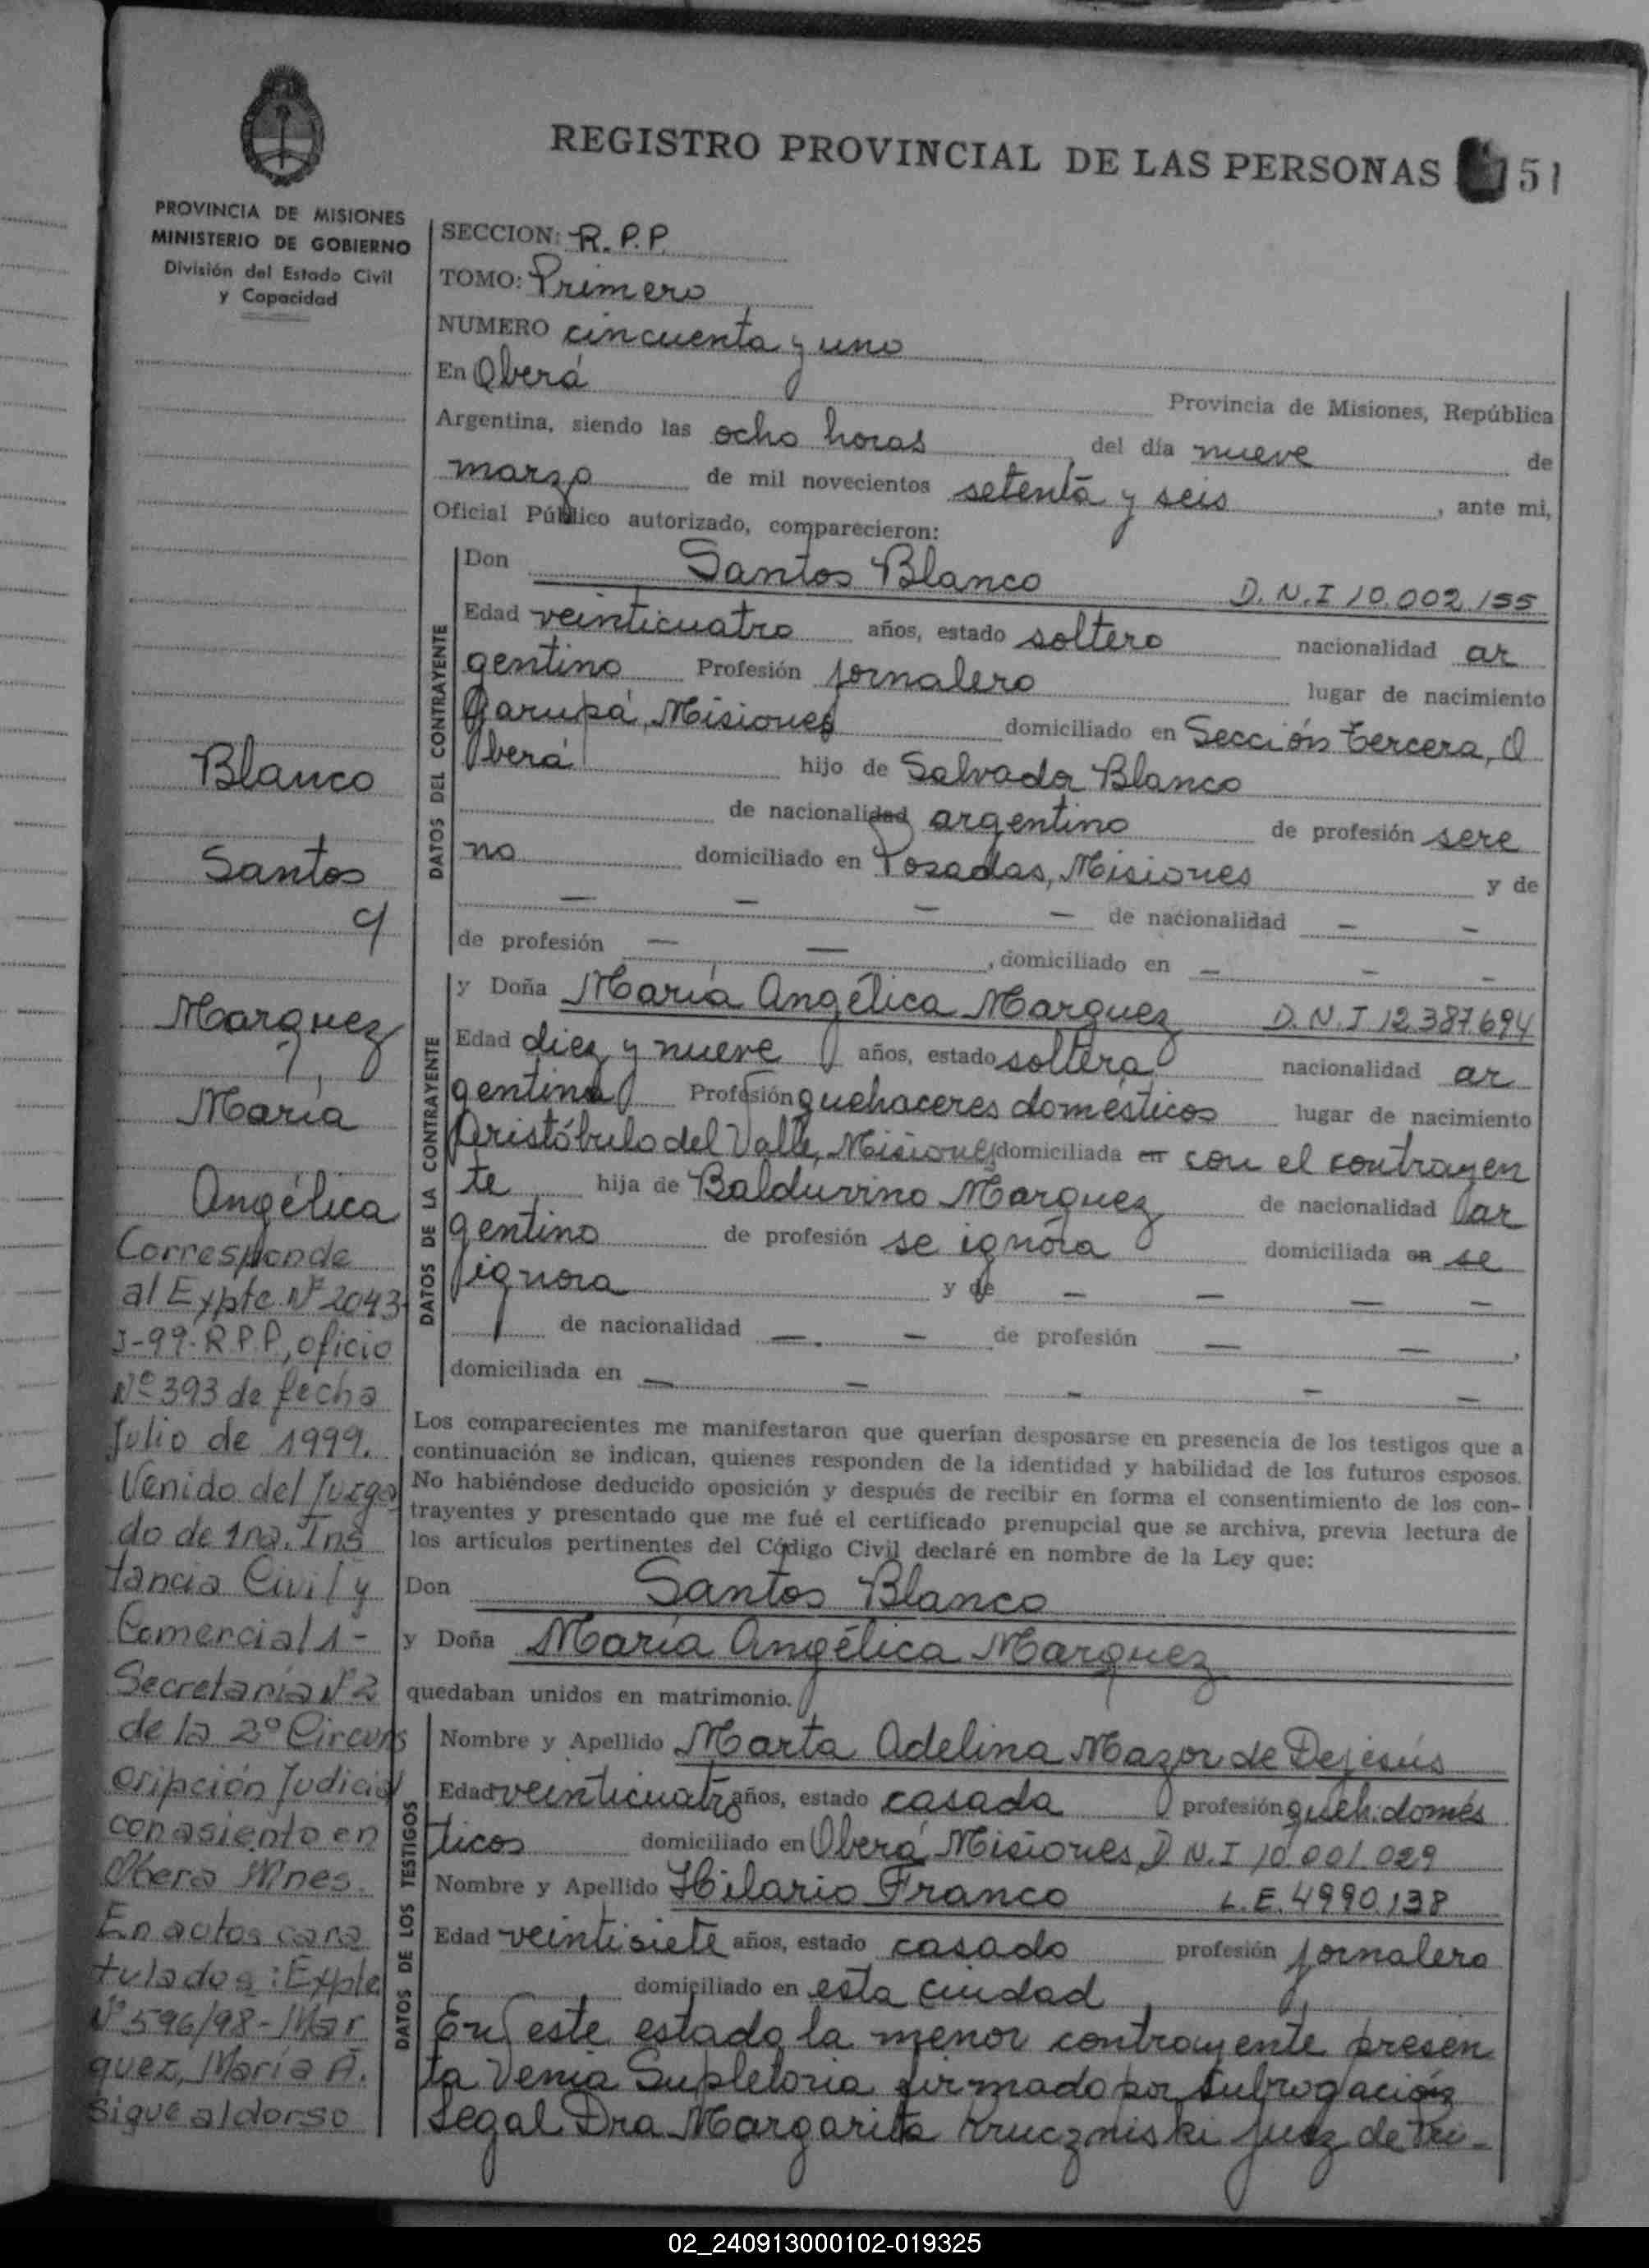 REGISTRO PROVINCIAL DE LAS PERSONAS 51
PROVINCIA DE MISIONES
MINISTERIO DE GOBIERNO
División del Estado Civil
y Capacidad
SECCION: R. P. P.
TOMO: Primero
NUMERO cincuenta y uno
En Oberá
Provincia de Misiones, República
Argentina, siendo las ocho horas del día nueve de
marzo de mil novecientos setenta y seis, ante mi,
Oficial Público autorizado, comparecieron:
DATOS DEL CONTRAYENTE
Don Santos Blanco D. N. I 10.002.155
Edad veinticuatro años, estado soltero nacionalidad ar
gentino Profesión jornalero lugar de nacimiento
Garupá, Misiones domiciliado en Sección tercera, O
berá hijo de Salvador Blanco
de nacionalidad argentino de profesión sere
no domiciliado en Posadas, Misiones y de
— — — — de nacionalidad — —
de profesión — —, domiciliado en — — —
DATOS DE LA CONTRAYENTE
y Doña María Angélica Marquez D. N. I 12.387.694
Edad diez y nueve años, estado soltera nacionalidad ar
gentina Profesión quehaceres domésticos lugar de nacimiento
Aristóbulo del Valle, Misiones domiciliada en con el contrayen
te hija de Balduvino Marquez de nacionalidad ar
gentino de profesión se ignora domiciliada en se
ignora y de — — — —
de nacionalidad — — de profesión — —,
domiciliada en — — — — —
Los comparecientes me manifestaron que querían desposarse en presencia de los testigos que a
continuación se indican, quienes responden de la identidad y habilidad de los futuros esposos.
No habiéndose deducido oposición y después de recibir en forma el consentimiento de los con-
trayentes y presentado que me fué el certificado prenupcial que se archiva, previa lectura de
los artículos pertinentes del Código Civil declaré en nombre de la Ley que:
Don Santos Blanco
y Doña María Angélica Marquez
quedaban unidos en matrimonio.
DATOS DE LOS TESTIGOS
Nombre y Apellido Marta Adelina Mazor de Dejesús
Edad veinticuatro años, estado casada profesión queh. domés
ticos domiciliado en Oberá Misiones D. N. I 10.001.029
Nombre y Apellido Hilario Franco L. E. 4990.138
Edad veintisiete años, estado casado profesión jornalero
domiciliado en esta ciudad
En este estado la menor contrayente presen
ta Venia Supletoria firmado por Subrogación
Legal Dra Margarita Kruczniski juez de Pri-
Blanco
Santos
y
Marquez
María
Angélica
Corresponde
al Expte. Nº 2043
J-99-R.P.P, oficio
Nº 393 de fecha
Julio de 1999.
Venido del Juzga
do de 1ra. Ins
tancia Civil y
Comercial 1-
Secretaría Nº 2
de la 2º Circuns
cripción Judicial
con asiento en
Obera Mnes.
En autos cara
tulados: Expte
Nº 596/98-Mar
quez, María A.
Sigue al dorso
02_240913000102-019325